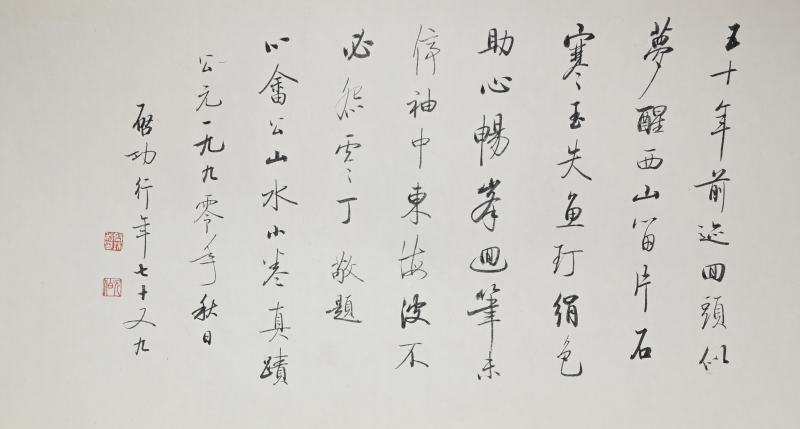 五十年前迹回頭似
夢醒西山留片石
寒玉失魚玎絹色
助心暢峯迴筆未
停袖中東海波不
必怨零丁敬題
心畬公山水小卷真蹟
公元一九九零年秋日
啟功行年七十又九